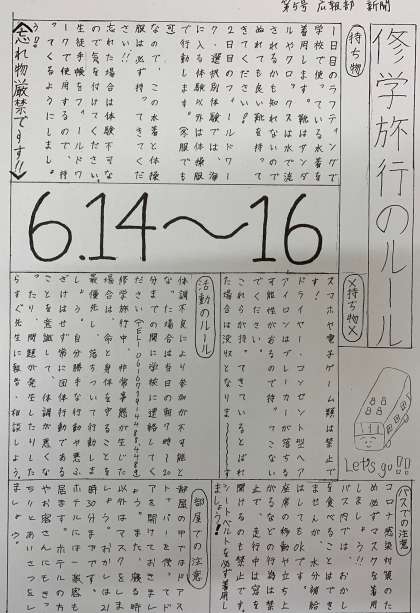 第5号 広報部 新聞
修学旅行のルール
持ち物
1日目のラフティングで
学校で使っている水着を
着用します。靴はサンダ
ルやクロックスは水で流
されるかも知れないので
ぬれても良い靴を持って
きてください。
2日目のフィールドワー
ク・選択別体験では、海
に入る体験以外は体操服
で行動します。(冬服でも
可)
なので、この水着と体操
服は必ず持ってきてくだ
さい!!
忘れた場合は体験不可な
ので気を付けてください。
生徒手帳をフィールドワ
ークで使用するので、持
ってくるようにしましょ
う!!
忘れ物厳禁です!!
6.14〜16
×持ち物×
スマホや電子ゲーム類は禁止で
す!
ドライヤー・コンセント型ヘア
アイロンはブレーカーが落ちる
可能性があるので持ってこない
でください。
これらが持ってきていることばれ
た場合は没収となりま〜す
Let's go!!
活動のルール
体調不良により参加が不可能と
なった場合は当日の朝7時〜20
分までの間に学校に連絡してく
ださい。
修学旅行中、非常事態が生じた
場合は、命と身体を守ることを
最優先し、落ちついて行動しま
しょう。自分勝手な行動や悪ふ
ざけはせず常に団体行動である
ことを意識して、体調が悪くな
ったり、問題が発生したりした
らすぐ先生に報告・相談しよう。
バスでの注意
コロナ感染対策のた
め必ずマスクを着用
しましょう!!
バス内では、おかし
を食べることはでき
ませんが、水分補給
はしてもOKです。
座席の移動や立ち上
がるなどの行為は禁
止で、走行中は窓を
開けるのも禁止です。
シートベルトを必ず着用し
ましょう!
部屋での注意
部屋の中ではドアス
トッパーを使ってド
アを開けておきまし
ょう。また、寝る時
以外はマスクをしま
しょう。おかしは21
時30分までです。
ホテルには一般客も
居ます。ホテルの方
やお客さんにもきっ
ちりとあいさつをし
ましょう。